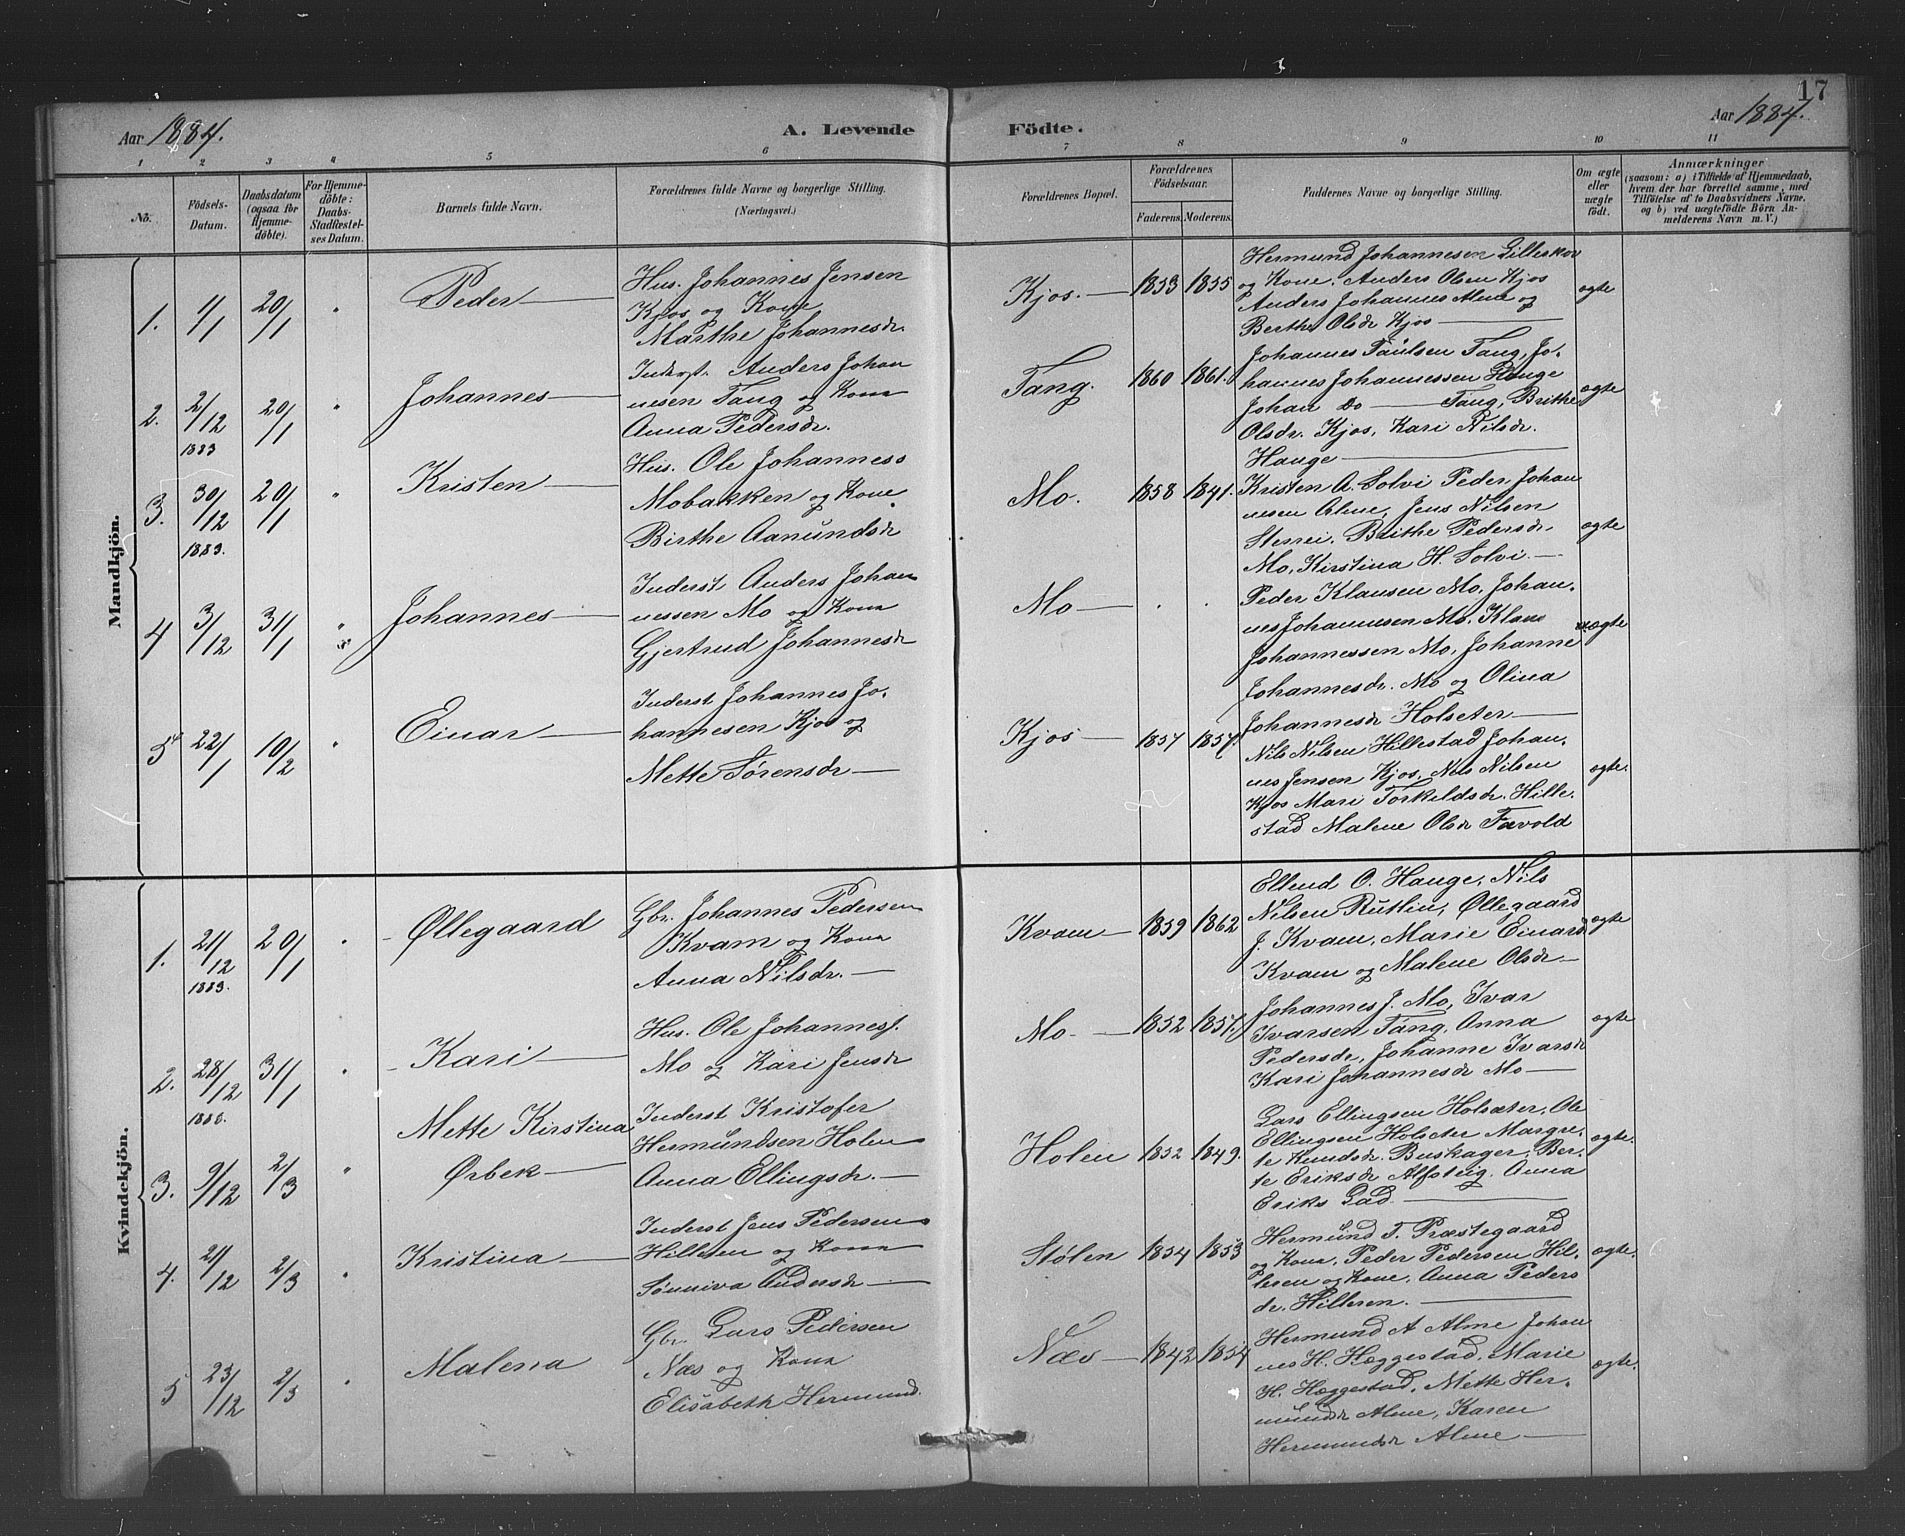 17
Aar 1884.
A. Levende Födte.
Aar 1884.
1 2 3 4 5 6 7 8 9 10 11
No.
Födsels-Datum.
Daabsdatum (ogsaa for Hjemmedöbte).
For Hjemmedöbte: Daabs-Stadfæstelses Datum.
Barnets fulde Navn.
Forældrenes fulde Navne og borgerlige Stilling.
(Næringsvei.)
Forældrenes Bopæl.
Forældrenes Födselsaar.
Faderens. Moderens.
Faddernes Navne og borgerlige Stilling.
Om ægte eller uægte födt.
Anmærkninger
(saasom: a) i Tilfælde af Hjemmedaab, hvem der har forrettet samme, med Tilföielse af to Daabsvidners Navne, og b) ved uægtefödte Börn Anmelderens Navn m. V.)
Mandkjön.
1. 1/1 20/1 " Peder
Hus. Johannes Jensen
Kjos og Kone
Marthe Johannesdr.
Kjos. 1853 1855
Hermund Johannesen Lilleskov
og Kone. Anders Olsen Kjos
Anders Johannes Alme og
Berthe Olsdr Kjos
ægte
2. 2/12 1883 20/1 " Johannes
Inderst. Anders Johan
nesen Tang og Kona
Anna Pedersdr.
Tang. 1860 1861.
Johannes Paulsen Tang, Jo-
hannes Johannessen Hauge
Johan Do Tang, Brithe
Olsdr. Kjos, Kari Nilsdr.
Hauge
ægte
3. 30/12 1883. 20/1 " Kristen
Hus. Ole Johanness
Mobakken og Kone
Birthe Aamundsdr
Mo. 1858 1841.
Kristen A. Solvi Peder Johan
nesen Alme, Jens Nilsen
Brithe Pedersdr.
Mo, Kirstina H. Solvi.
ægte
4 3/12 31/1 " Johannes
Inderst Anders Johan
nessen Mo og Kona
Gjertrud Johannesdr
Mo
Peder Klausen Mo, Johan-
nes Johannesen Mo, Klaus
Johannessen Mo, Johanne
Johannesdr. Mo og Olina
Johannesdr Holseter
uægte
5 22/1 10/2 " Einar
Inderst Johannes Jo-
hannesen Kjos og
Mette Sørensdr
Kjos 1857 1857.
Nils Nilsen Hillestad Johan-
nes Jensen Kjos, Nils Nilsen
Kjos Mari Torkeldsdr. Hille-
stad Malene Olsdr Favold
ægte.
Kvindekjön.
1. 21/12 1883. 20/1 " Øllegaard
Gbr. Johannes Pedersen
Kvam og Kona
Anna Nilsdr.
Kvam 1859 1862
Ellend O. Hauge, Nils
Nilsen Rutlin, Øllegaard
J. Kvam, Marie Einarsd
Kvam og Malene Olsdr
ægte
2. 28/12 31/1 " Kari
Hus. Ole Johannesf.
Mo og Kari Jensdr
Mo 1852 1857.
Johannes J. Mo, Ivar
Ivarsen Tang, Anna
Pedersdr, Johanne Ivarsdr
Kari Johannesdr Mo
ægte
3. 9/12 2/3 " Mette Kirstina
Ørbek
Inderst Kristofer
Hermundsen Holen
Anna Ellingsdr.
Holen 1852 1849.
Lars Ellingsen Holseter, Ole
Ellingsen Holseter Margre-
te Knudsdr. Buskager, Ber-
te Eriksdr Alfsteig. Anna
Eriks Lad.
ægte.
4. 21/12 2/3 " Kristina
Inderst Jens Pedersen
Hilleren og Kona
Sønniva Andersdr
Stølen 1854 1853
Hermund T. Præstegaard
og Kona, Peder Pedersen Hil-
leren og Kone, Anna Peders
dr. Hilleren.
ægte.
5 23/12 2/3 " Malena
Gbr. Lars Pedersen
Næs og Kona
Elisabeth Hermund.
Næs 1842 1854
Hermund A Alme Johan
nes H. Hæggestad, Marie
H. Hæggestad, Mette Her-
mundsdr Alme, Karen
Hermundsdr Alme
ægte.